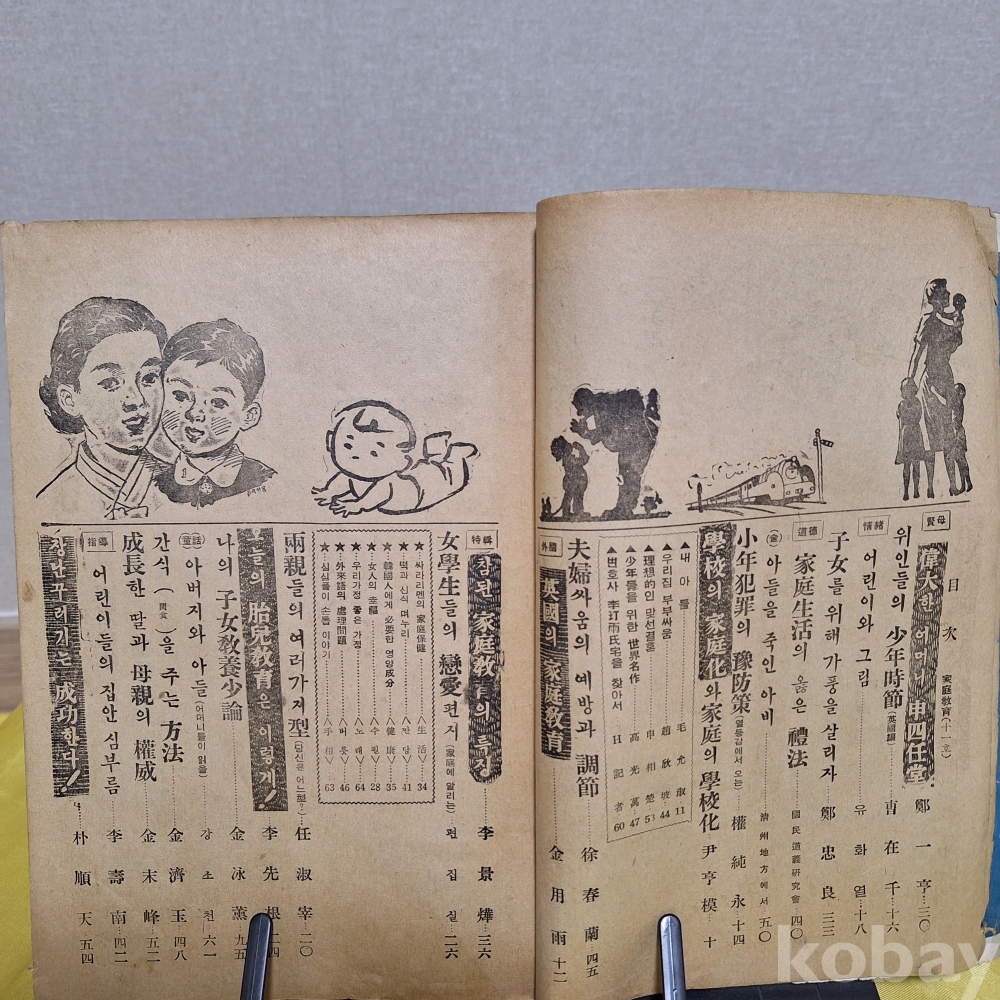 目次
家庭敎育(十一호)
賢母
偉大한 어머니 申四任堂 鄭一亨…三〇
위인들의 少年時節(英國篇) 曺在千…十六
情緖
어린이와 그림 유화열…十八
子女를 위해 가풍을 살리자 鄭忠良…三三
道德
家庭生活의 옳은 禮法 國民道義硏究會…四〇
(金) 아들을 죽인 아비 淸州地方에서…五〇
小年犯罪의 豫防策(열등감에서 오는) 權純永…十四
學校의 家庭化와 家庭의 學校化 尹亨模…十
▲내 아들 毛允淑…11
▲우리집 부부싸움 趙欣坡…44
▲理想的인 맞선결혼 申相楚…53
▲少年들을 위한 世界名作 高光萬…47
▲변호사 李玎雨氏宅을 찾아서 H記者…60
夫婦싸움의 예방과 調節 徐春蘭…四五
外國
英國의 家庭敎育 金用雨…十二
特輯
참된 家庭敎育의 특징 李景燁…三六
女學生들의 戀愛편지(家庭에 알리는) 편집실…二六
★싸라리멘의 家庭保健…<生活>34
★떡과 신식 며누리…<만담>41
★韓國人에게 必要한 영양成分…<健康>35
★女人의 幸福…<수필>28
★우리가정 좋은 가정…<노래>64
★外來語의 處理問題…<버릇>46
★심심풀이 손톱 이야기…<手相>63
兩親들의 여러가지 型(당신은 어느型?) 任淑宰…二〇
오늘의 胎兒敎育은 이렇게! 李先根…二四
나의 子女敎養少論 金泳薰…九五
(童話) 아버지와 아들(어머니들이 읽을) 강소천…六一
간식(間食)을 주는 方法 金濟玉…四八
成長한 딸과 母親의 權威 金末峰…五二
指導
어린이들의 집안 심부름 李壽南…四二
장난꾸러기는 成功한다! 朴順天…五四
kobay